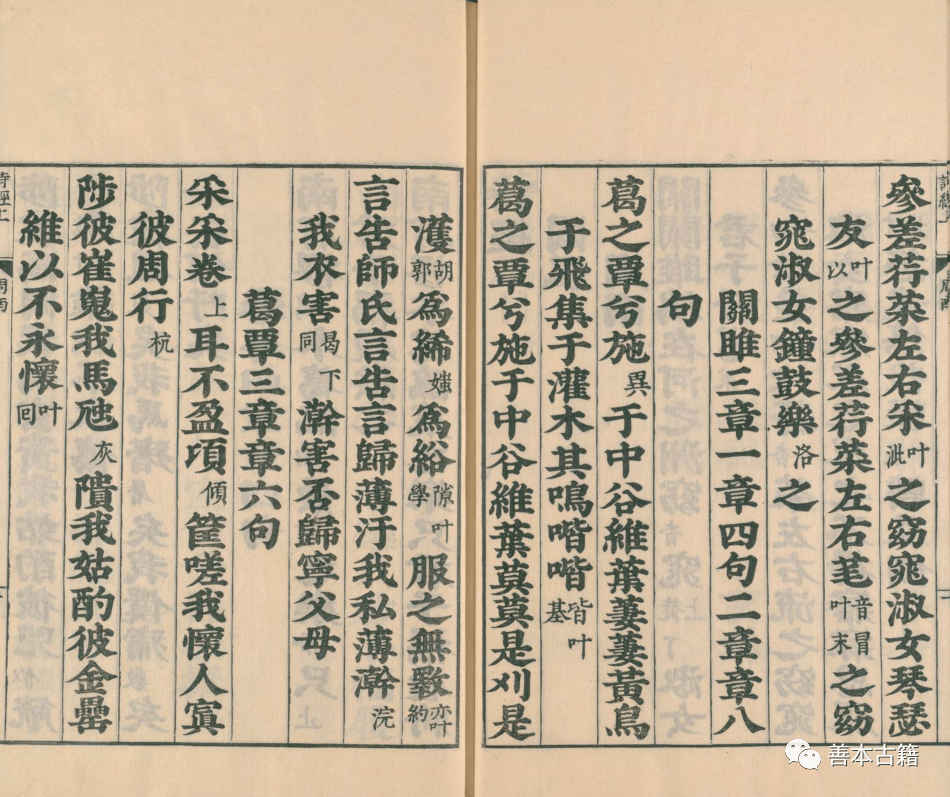 參差荇菜左右采叶泚之窈窕淑女琴瑟
友叶以之參差荇菜左右芼音冒叶末之窈
窕淑女鐘鼓樂洛之
關雎三章一章四句二章章八
句
葛之覃兮施異于中谷維葉萋萋黃鳥
于飛集于灌木其鳴喈喈皆叶基
葛之覃兮施于中谷維葉莫莫是刈是
濩胡郭為絺蚩為綌隙叶學服之無斁亦叶約
言告師氏言告言歸薄汙我私薄澣浣
我衣害曷同下澣害否歸寧父母
葛覃三章章六句
采采卷上耳不盈頃傾筐嗟我懷人寘
彼周行杭
陟彼崔嵬我馬虺灰隤我姑酌彼金罍
維以不永懷叶回
善本古籍